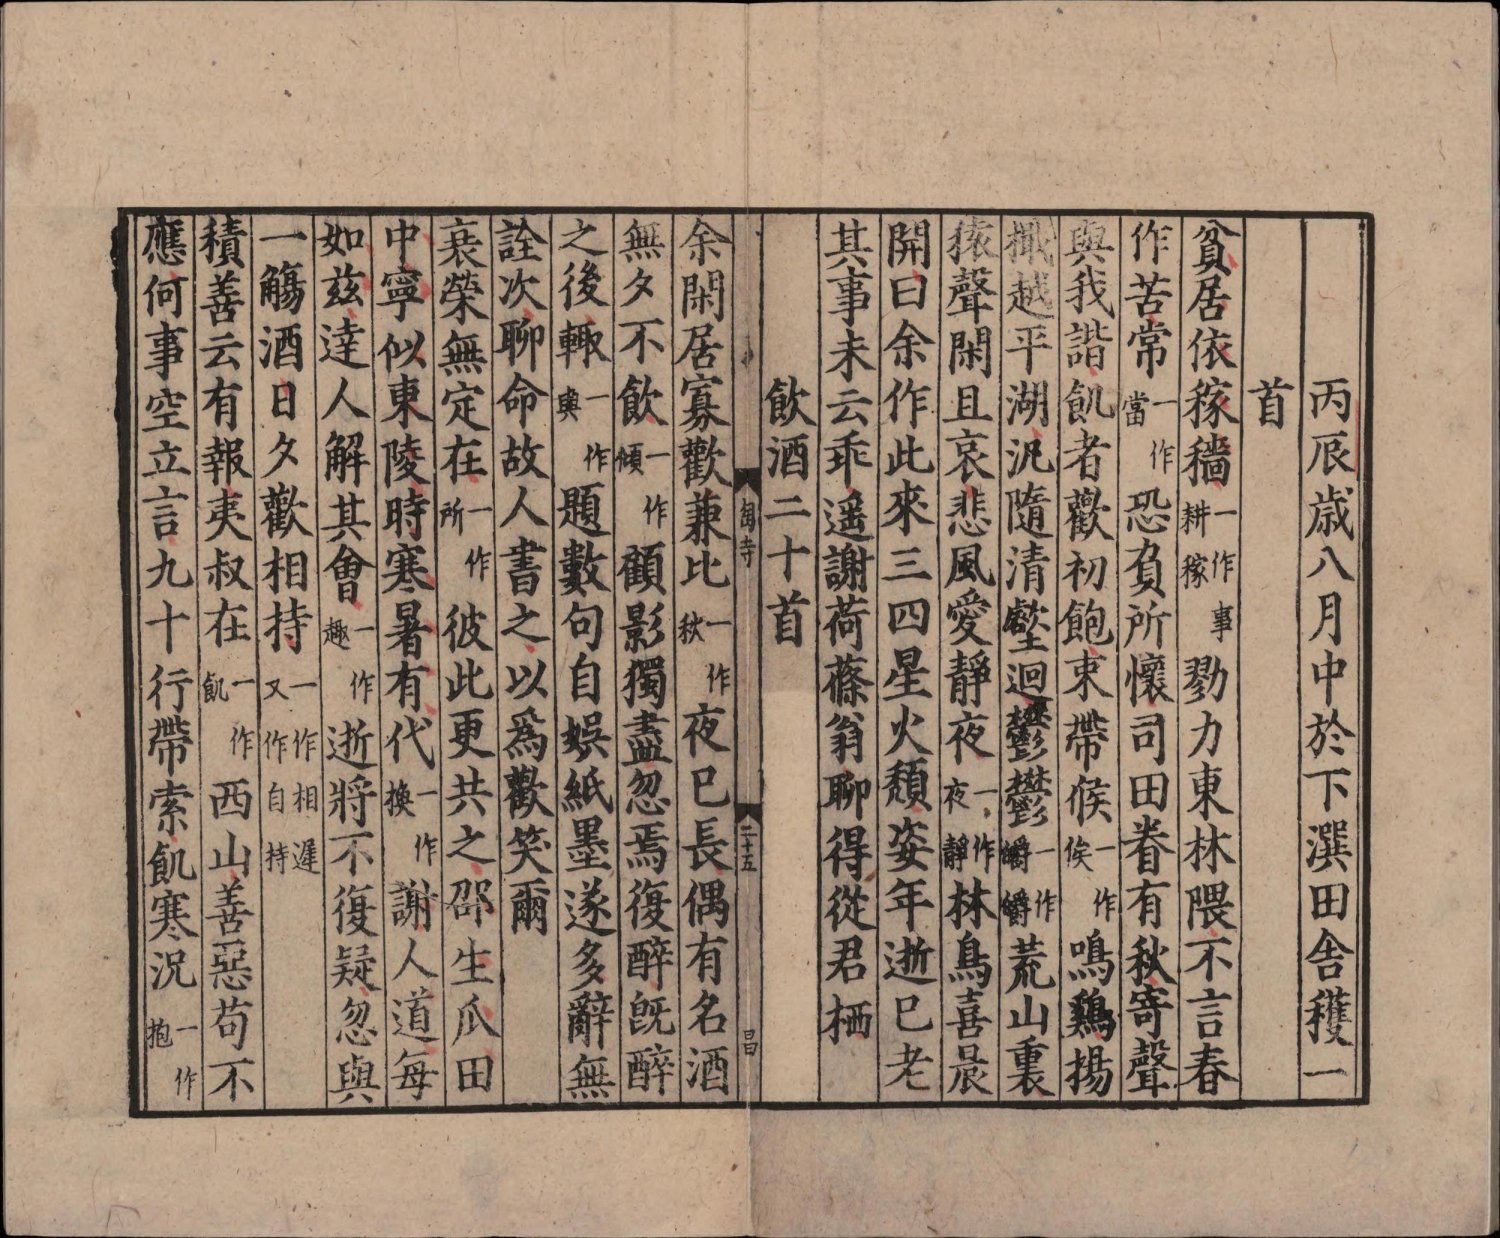 丙辰歲八月中於下潠田舍穫一
首
貧居依稼穡一作耕稼事勠力東林隈不言春
作苦常一作當恐負所懷司田眷有秋寄聲
與我諧飢者歡初飽束帶候一作俟鳴鷄揚
檝越平湖汎隨清壑迴鬱鬱一作皭皭荒山裏
猿聲閑且哀悲風愛靜夜一作夜靜林鳥喜晨
開曰余作此來三四星火頹姿年逝已老
其事未云乖遥謝荷蓧翁聊得從君栖
飲酒二十首
匋寺
二十五
昌
余閑居寡歡兼比一作秋夜已長偶有名酒
無夕不飲一作傾顧影獨盡忽焉復醉旣醉
之後輙一作與題數句自娱紙墨遂多辭無
詮次聊命故人書之以爲歡笑爾
衰榮無定在一作所彼此更共之邵生瓜田
中寧似東陵時寒暑有代一作換謝人道每
如兹達人解其會一作趣逝將不復疑忽與
一觴酒日夕歡相持一作相遲又作自持
積善云有報夷叔在一作飢西山善惡苟不
應何事空立言九十行帶索飢寒況一作抱